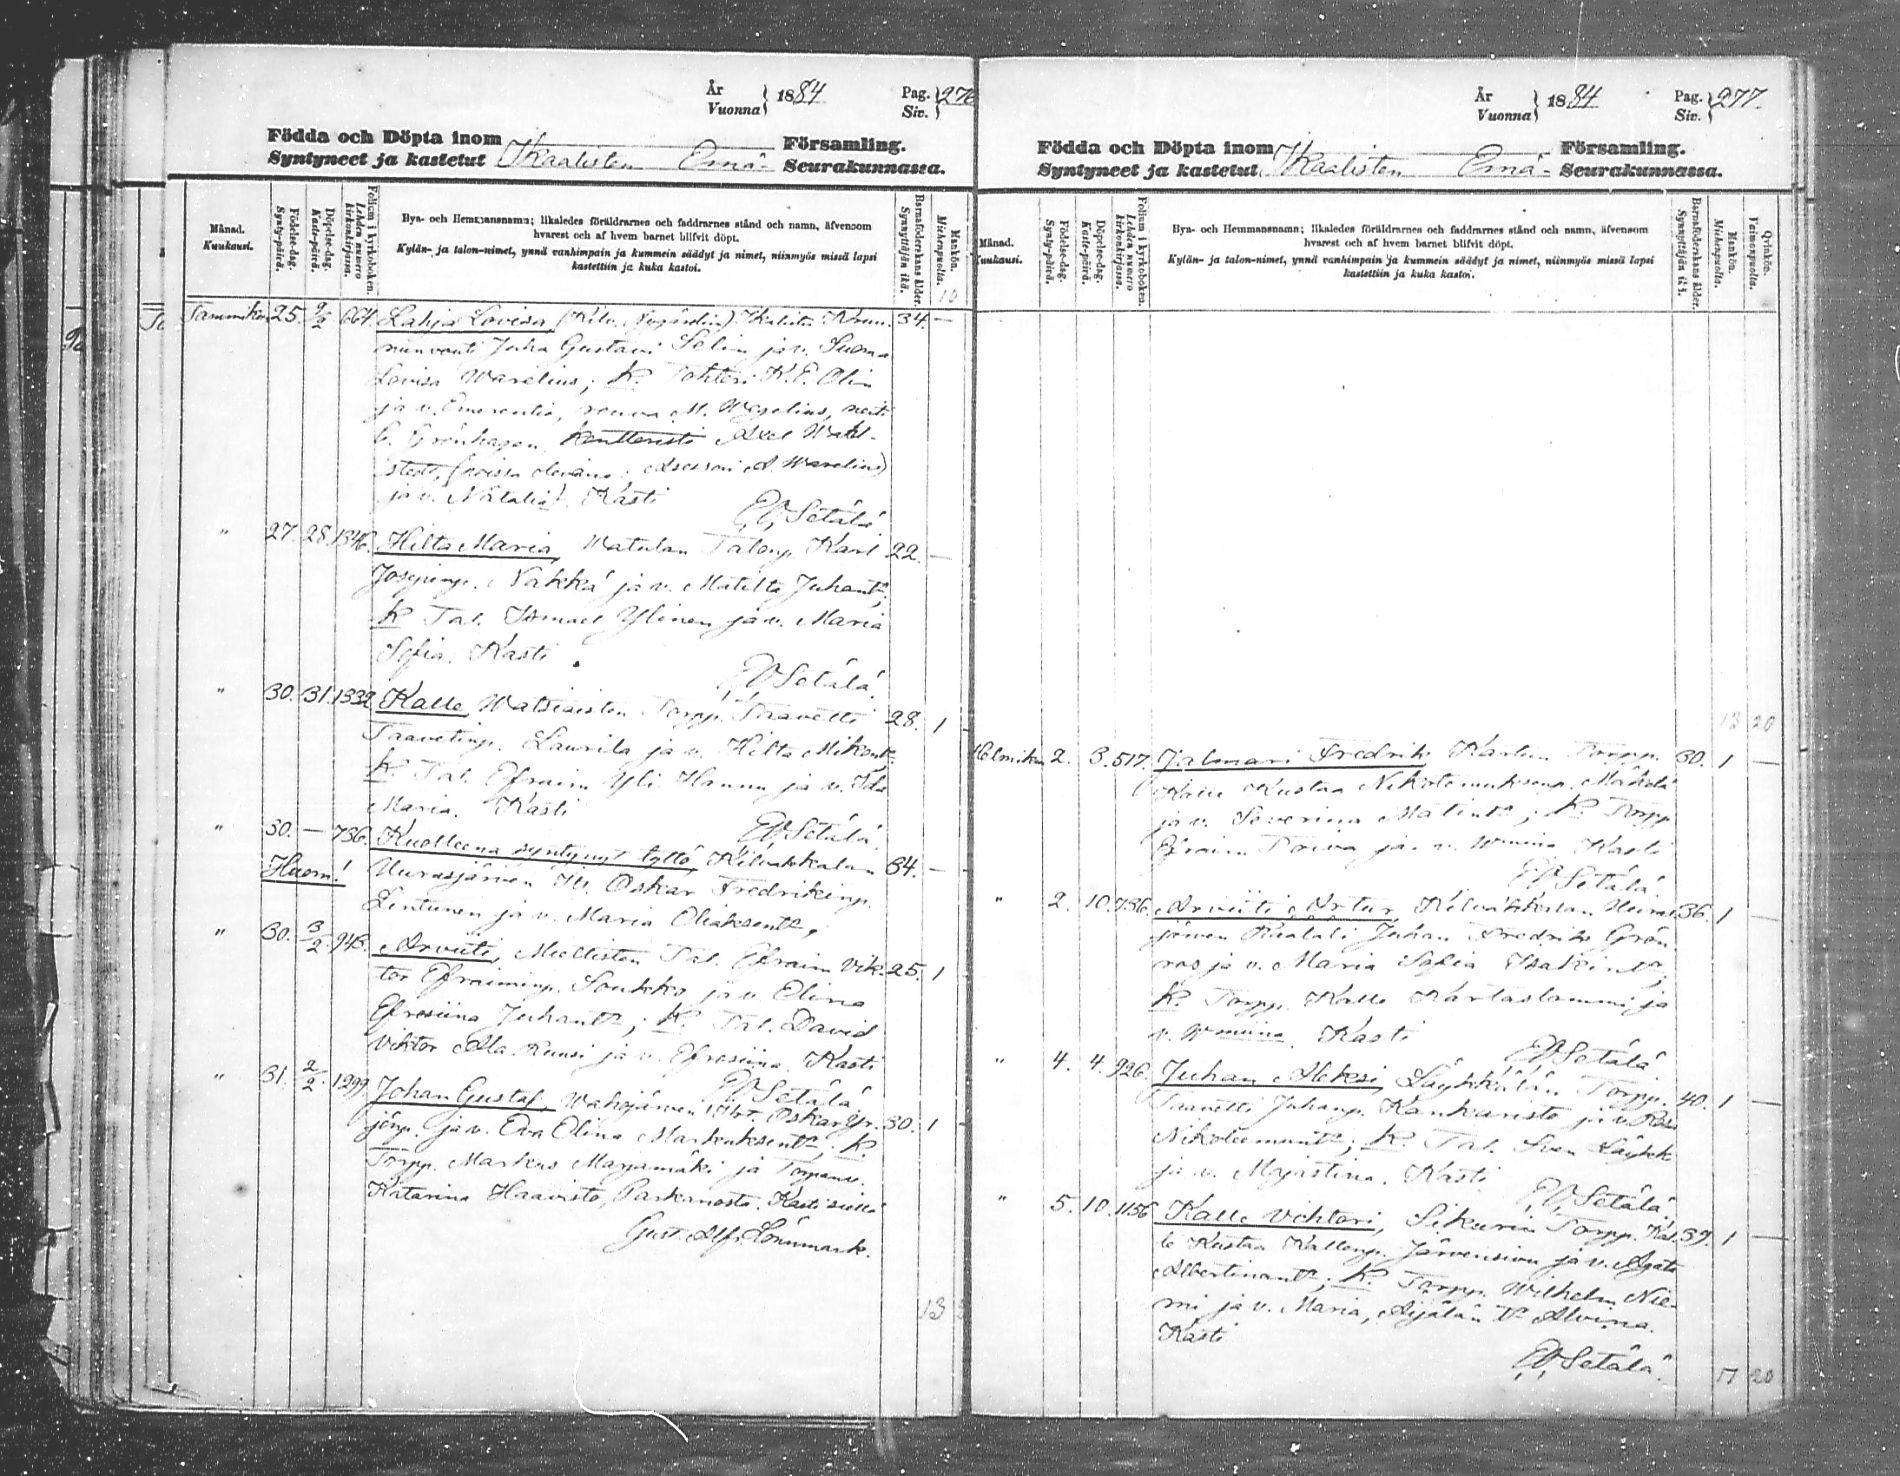 År Vuonna } 1884 Pag. Siv. } 276
Födda och Döpta inom Ikaalisten Emä- Församling.
Syntyneet ja kastetut Seurakunnassa.
Månad. Kuukausi.
Födelse-dag. Synty-päivä.
Döpelse-dag. Kaste-päivä.
Folium i kyrkoboken. Lehden numero kirkonkirjassa.
Bya- och Hemmansnamn; likaledes föräldrarnes och faddrarnes stånd och namn, äfvensom
hvarest och af hvem barnet blifvit döpt.
Kylän- ja talon-nimet, ynnä vanhimpain ja kummein säädyt ja nimet, niinmyös missä lapsi
kastettiin ja kuka kastoi.
Barnaföderskans ålder. Synnyttäjän ikä.
Mankön. Miehenpuolia.
10
Tammikuu 25. 9/2 664. Lahja Lovisa Ikalista Kruu- 34. —
nunvouti Juha Gustavi Selin ja v. Suoma
Lovisa Warelius; K. Tohtori K. E. Olin
ja v. Emerentia, rouva M. Wegelius, neit.
C. Grönhagen, Axel Wahl-
stedt, (poissa olevina: Asessori A. Warelius)
ja v. Natalia). Kasti
E. V. Setälä
" 27. 28. 1346. Hilta Maria, Watulan Talonp. Karl 22. —
Josepinp. Nakká ja v. Matilta Juhant.;
K. Tal. Ismael Ylinen ja v. Maria
Sofia. Kasti.
E. V. Setälä.
" 30. 31. 1332 Kalle, Watsiaisten Torpp. Taavetti 28. 1
Taavetinp. Laurila ja v. Hilta Mikont.
K. Tal. Efraim Yli Hannu ja v. Ida
Maria. Kasti
E. V. Setälä.
" 30. — 736. Kuolleena syntynyt tyttö, Kilvakkalan 34. —
Huom! Uurasjärven Its. Oskar Fredrikinp.
Lintunen ja v. Maria Oliaksent.
" 30. 3/2 943. Arviiti, Miettisten Tal. Efraim Vik- 25. 1
tor Efraiminp. Soukko ja v. Elina
Efrosiina Juhant.; K. Tal. David
Viktor Ala-Kuusi ja v. Efrosiina. Kasti
E. V. Setälä.
" 31. 2/2. 1299. Johan Gustaf, Wahojärven Oskar Yr- 30. 1 —
jönp. ja v. Eva Elina Markuksent.; K.
Torpp. Markus Marjamäki ja Torpanv.
Katarina Haavisto, Parkanosta. Kasti siellä
Gust. Alfr. Lönnmark.
13
År Vuonna } 1884 Pag. Siv. } 277.
Födda och Döpta inom Ikaalisten Emä- Församling.
Syntyneet ja kastetut Seurakunnassa.
Månad. Kuukausi.
Födelse-dag. Synty-päivä.
Döpelse-dag. Kaste-päivä.
Folium i kyrkoboken. Lehden numero kirkonkirjassa.
Bya- och Hemmansnamn; likaledes föräldrarnes och faddrarnes stånd och namn, äfvensom
hvarest och af hvem barnet blifvit döpt.
Kylän- ja talon-nimet, ynnä vanhimpain ja kummein säädyt ja nimet, niinmyös missä lapsi
kastettiin ja kuka kastoi.
Barnaföderskans ålder. Synnyttäjän ikä.
Mankön. Miehenpuolia.
Qvinkön. Vaimonpuolia.
13 20
Helmikuu 2. 3. 517. Jalmari Fredrik, Torpp. 30. 1 —
Kalle Kustaa Nikotemuksenp. Mäkelä
ja v. Severina Matint.; K. Torpp
Efraim Toiva ja v. Wmiina Kasti
E. V. Setälä.
" 2. 10. 736. Arviiti Artur, Kilvakkalan Uuras- 36. 1 —
järven Juhan Fredrik Grön-
ros ja v. Maria Sofia Isakint.;
K. Torpp. Kalle Kartaslammi ja
v. Wmiina. Kasti
E. V. Setälä
" 4. 4. 926. Juhan Aleksi, Läykkälän Torpp. 40. 1 —
Taavetti Juhanp. Kankaristo ja v. Rosa
Nikoteemunt.; K. Tal. Sven Läykk
ja v. Majastina. Kasti
E. V. Setälä.
" 5. 10. 1156 Kalle Vihtori, Sikurin Torpp. Kal- 39. 1 —
le Kustaa Kallenp. Järvensivu ja v. Agata
Albertinant.; K. Torpp. Wilhelm Nie-
mi ja v. Maria, Äijälän Alvina.
Kasti
E. V. Setälä.
17 20